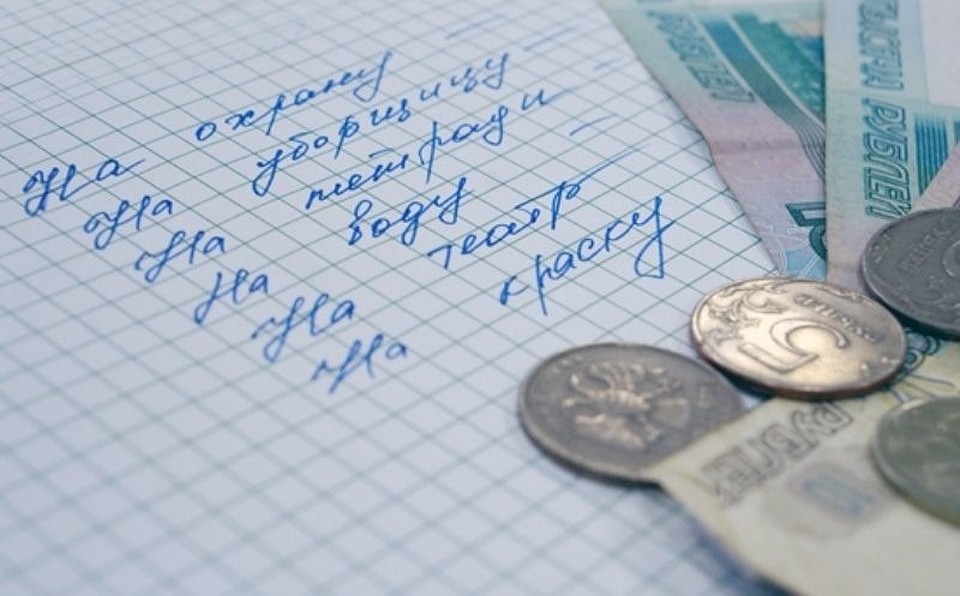 На охрану —
На уборщицу —
На тетради —
На воду —
На театр —
На краску
РУБЛЕЙ
ТЫСЯЧА РУБЛЕЙ
5
РУБЛЕЙ
10